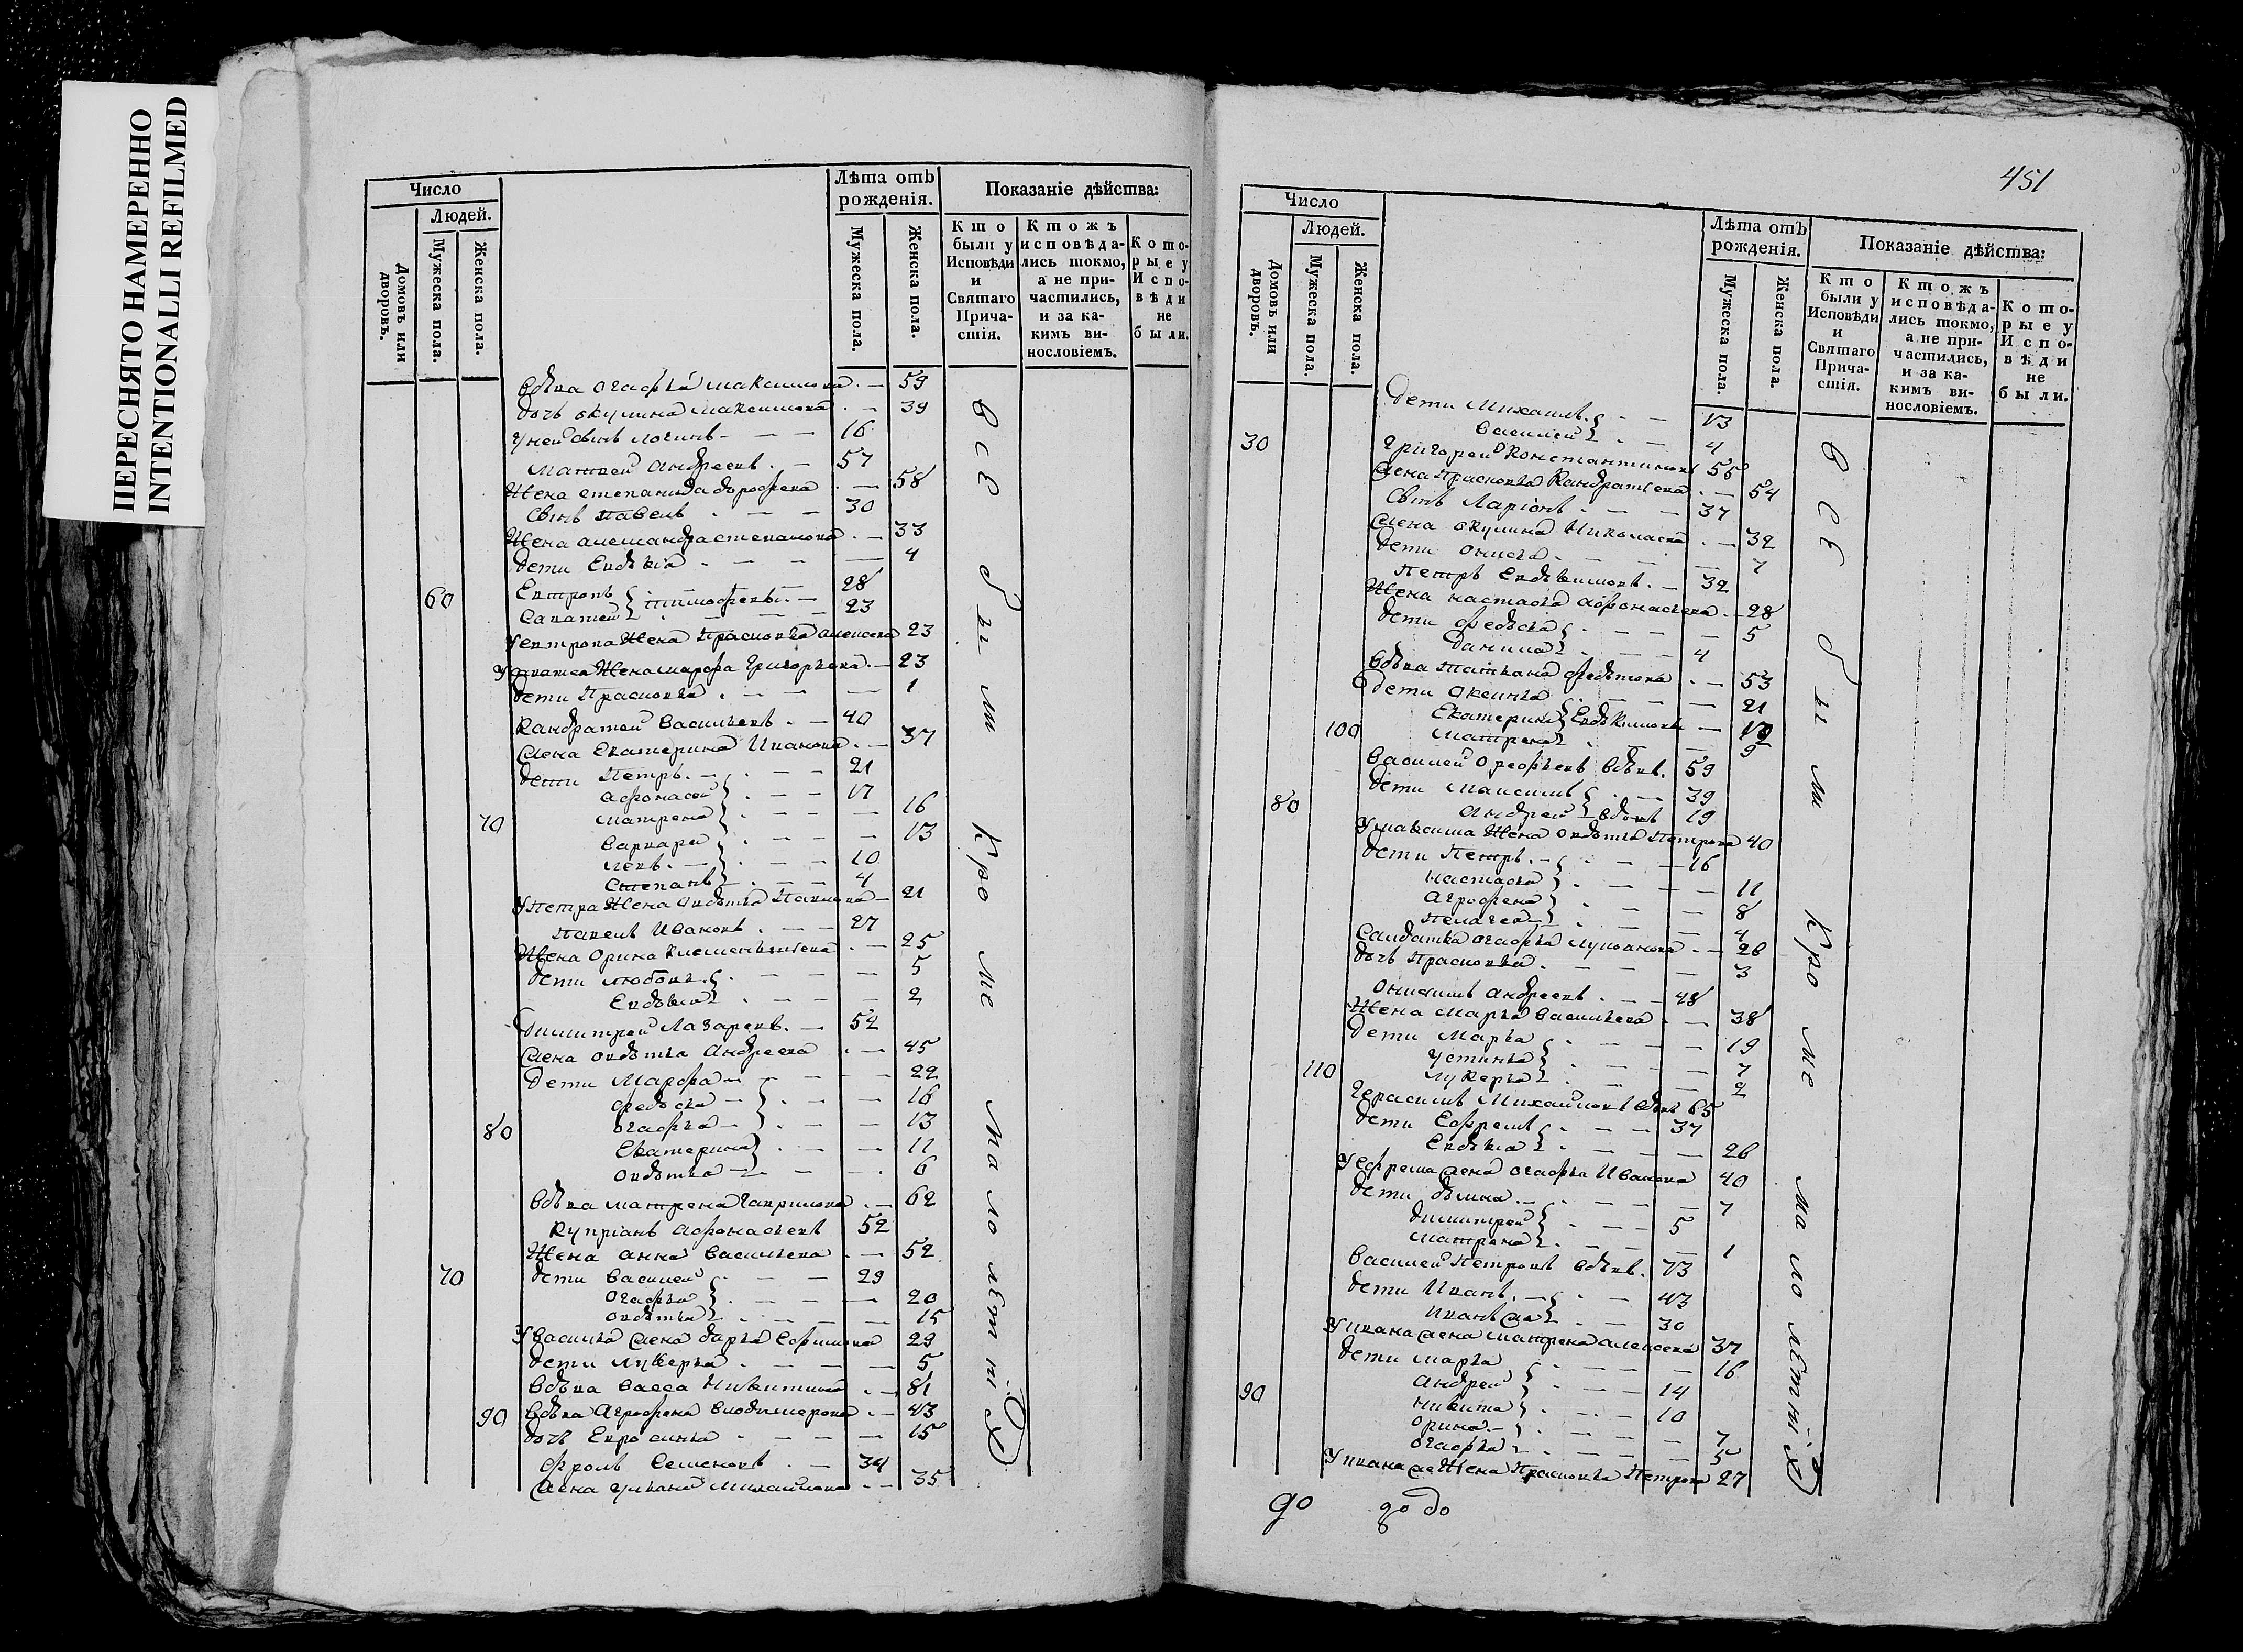 ПЕРЕСНЯТО НАМЕРЕННО
INTENTIONALLI REFILMED
Число
Людей.
Домовъ или дворовъ.
Мужеска пола.
Женска пола.
Лѣта отъ рожденія.
Мужеска пола.
Женска пола.
Показаніе дѣйства:
Кто были у Исповѣди и Святаго Причастія.
Ктожъ исповѣдались токмо, а не причастились, и за какимъ винословіемъ.
Которые у Исповѣди не были.
Вдѣва Огафья Максимова 59
дочь окулина Максимова 39
У неи сынъ логинъ 16
Матвеи Андреевъ 57
Жена степанида дорофеева 58
сынъ Павелъ 30
Жена александра степанова 33
дети Евдѣкия 4
60 Евтропъ 28
Саватеи тимофеевы 23
У евтропа Жена Прасковья алексеева 23
У саватея Жена марфа Григорьева 23
дети Прасковья 1
Кандратеи Васильевъ 40
Жена Екатерина Иванова 37
дети Петръ 21
Афонасеи 17
70 матрена 16
Варвара 13
левъ 10
Степанъ 4
У Петра Жена Авдотья Павлова 21
Павелъ Ивановъ 27
Жена Орина Клементьева 25
дети любовь 5
Евдѣкия 2
Димитреи Лазаревъ 52
Жена овдотья Андреева 45
дети Марфа 22
федосья 16
80 огафья 13
Екатерина 11
овдотья 6
Вдѣва матрена Гаврилова 62
Куприанъ Афонасьевъ 52
Жена анна Васильева 52
70 дети Василеи 29
Огафья 20
овдотья 15
У Василья Жена дарья Ефимова 29
дети лукерья 5
Вдѣва Васса Никитина 81
90 Вдѣва Аграфена Владимерова 43
дочь Евросинья 15
Фролъ Семеновъ 34
Жена улиана Михаилова 35
Всѣ были Кроме малолѣтнiхъ
451
Число
Людей.
Домовъ или дворовъ.
Мужеска пола.
Женска пола.
Лѣта отъ рожденія.
Мужеска пола.
Женска пола.
Показаніе дѣйства:
Кто были у Исповѣди и Святаго Причастія.
Ктожъ исповѣдались токмо, а не причастились, и за какимъ винословіемъ.
Которые у Исповѣди не были.
дети Михаилъ 13
Василеи 4
30 Григореи Константиновъ 55
Жена Прасковья Кандратьева 54
Сынъ Ларiонъ 37
Жена окулина Николаева 32
дети онисья 7
Петръ Евдокимовъ 32
Жена настасья Афонасьева 28
дети федосья 5
данила 4
Вдѣва татьяна федотова 53
дети Оксинья 21
Екатерина Евдокимовы
100 Матрена 9
Василеи Орефьевъ вдѣвъ 59
дети Максимъ 39
80 Андреи вдовъ 19
У максима Жена овдотья Петрова 40
дети Петръ 16
Настасья 11
Аграфена 8
Пелагея 4
Салдатка огафья лупоанова 26
дочь Прасковья 3
Онисимъ андреевъ 48
Жена Марья Васильева 38
дети Марья 19
Устинья 7
110 лукерья 2
Герасимъ Михаиловъ вдѣвъ 65
дети Ефремъ 37
Евдѣкия 26
У ефрема Жена огафья Иванова 40
дети дѣмна 7
димитреи 5
Матрена 1
Василеи Петровъ вдѣвъ 73
дети Иванъ 43
Иванъ Же 30
У ивана Жена матрена алексеева 37
дети марья 16
90 Андреи 14
Никита 10
орина 7
огафья 5
У ивана же Жена Прасковья Петрова 27
Всѣ были Кроме малолѣтнiхъ
90